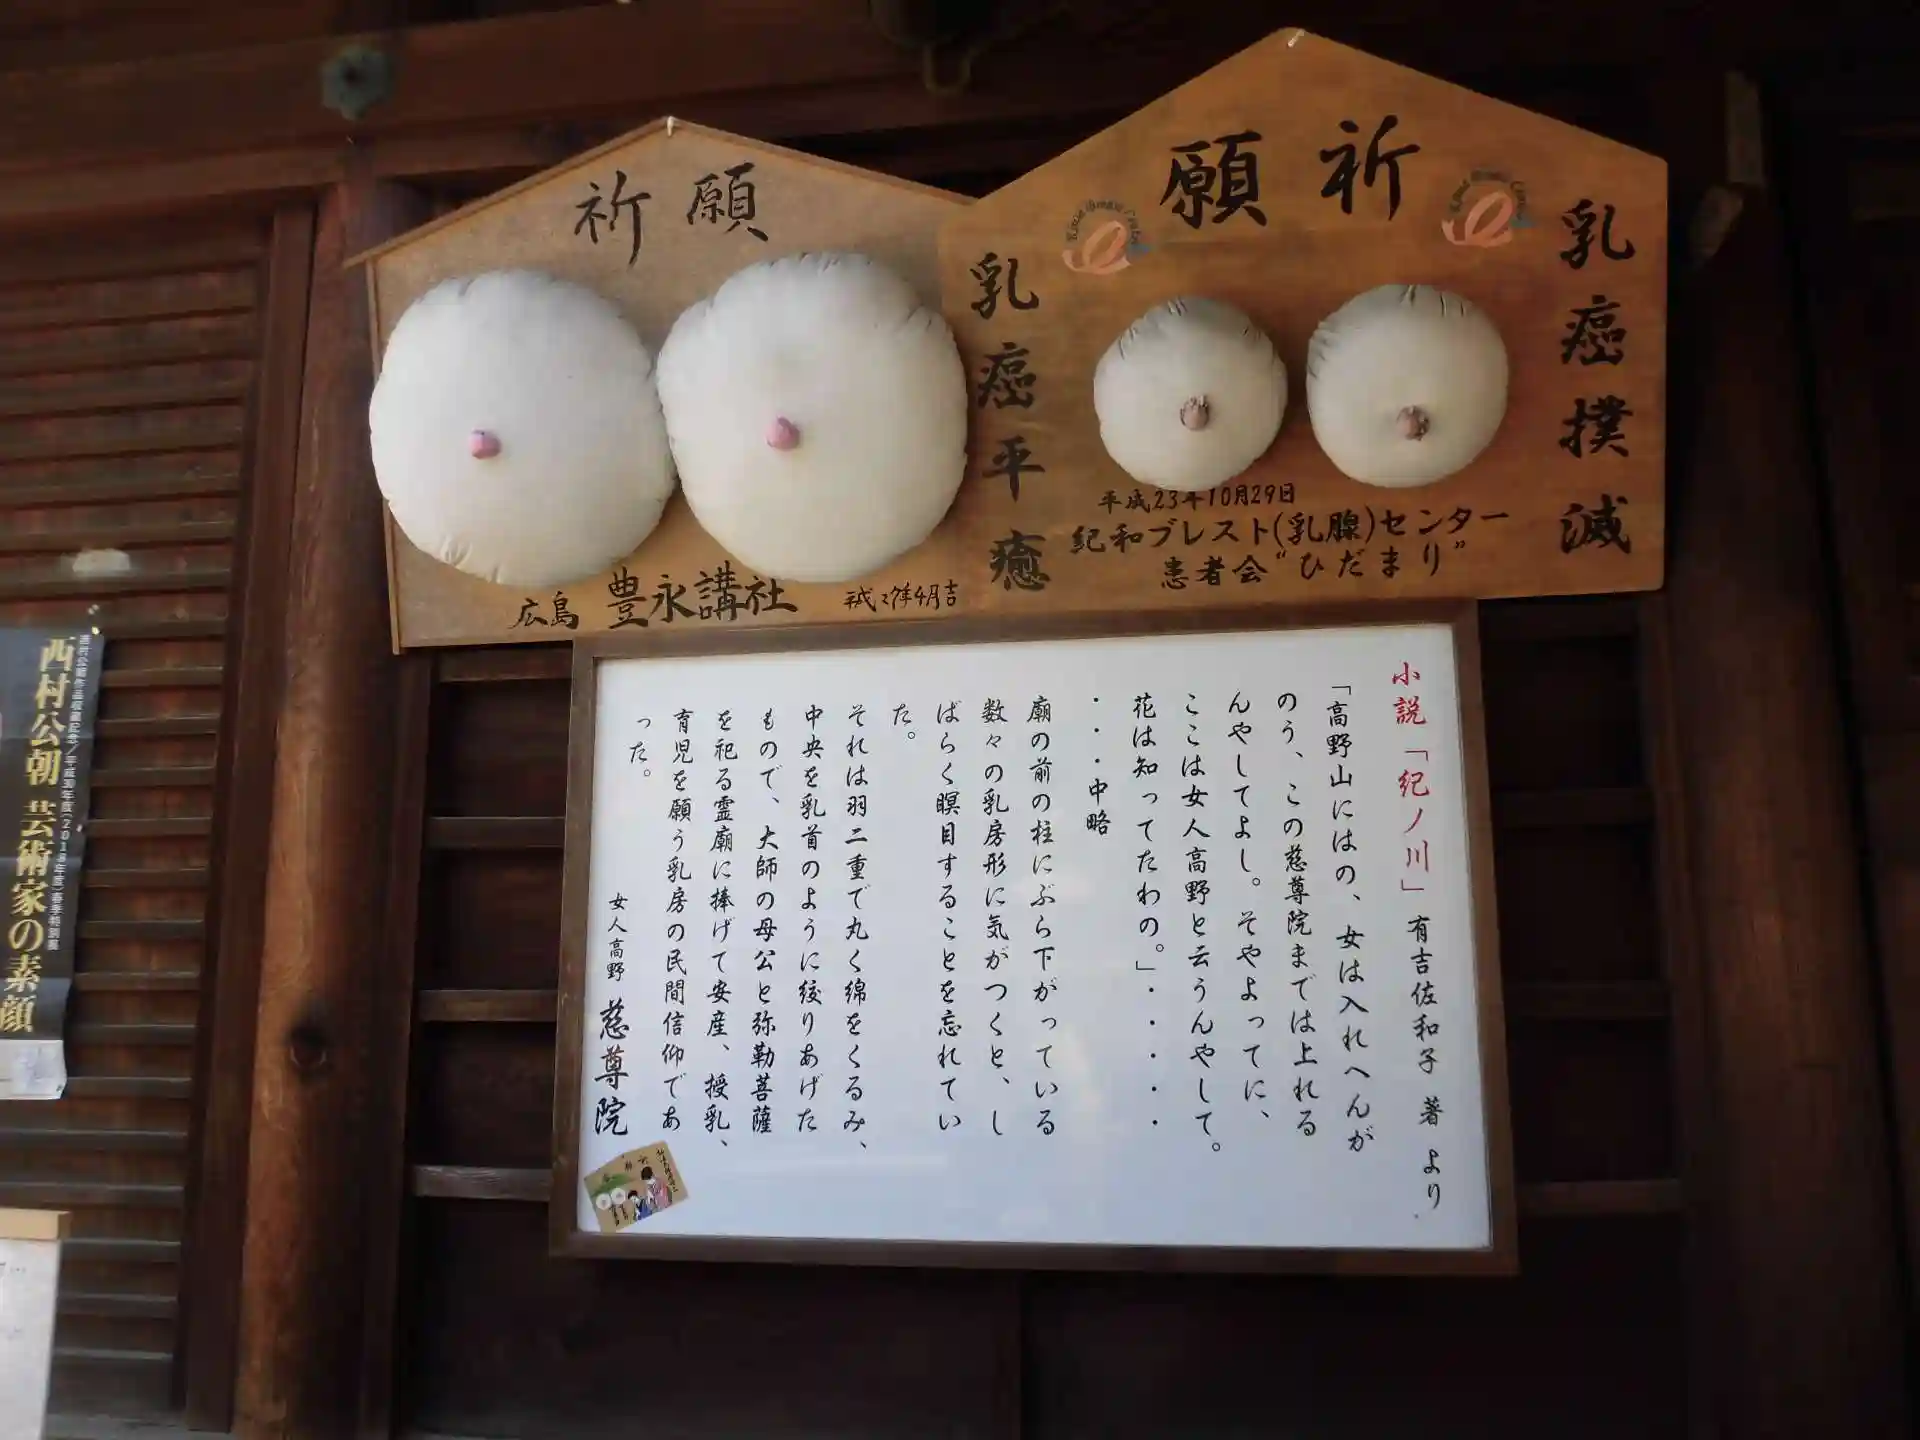 祈願
乳癌平癒
広島 豊永講社
平成27年4月吉
祈願
乳癌撲滅
平成23年10月29日
紀和ブレスト(乳腺)センター
患者会“ひだまり”
小説「紀ノ川」 有吉佐和子 著 より
「高野山にはの、女は入れへんが
のう、この慈尊院までは上れる
んやしてよし。そやよってに、
ここは女人高野と云うんやして。
花は知ってたわの。」・・・・・
・・・中略
廟の前の柱にぶら下がっている
数々の乳房形に気がつくと、し
ばらく瞑目することを忘れてい
た。
それは羽二重で丸く綿をくるみ、
中央を乳首のように絞りあげた
もので、大師の母公と弥勒菩薩
を祀る霊廟に捧げて安産、授乳、
育児を願う乳房の民間信仰であ
った。
女人高野 慈尊院
西村公朝 芸術家の素顔
西村公朝作品収蔵記念/平成30年度(2018年度)春季特別展